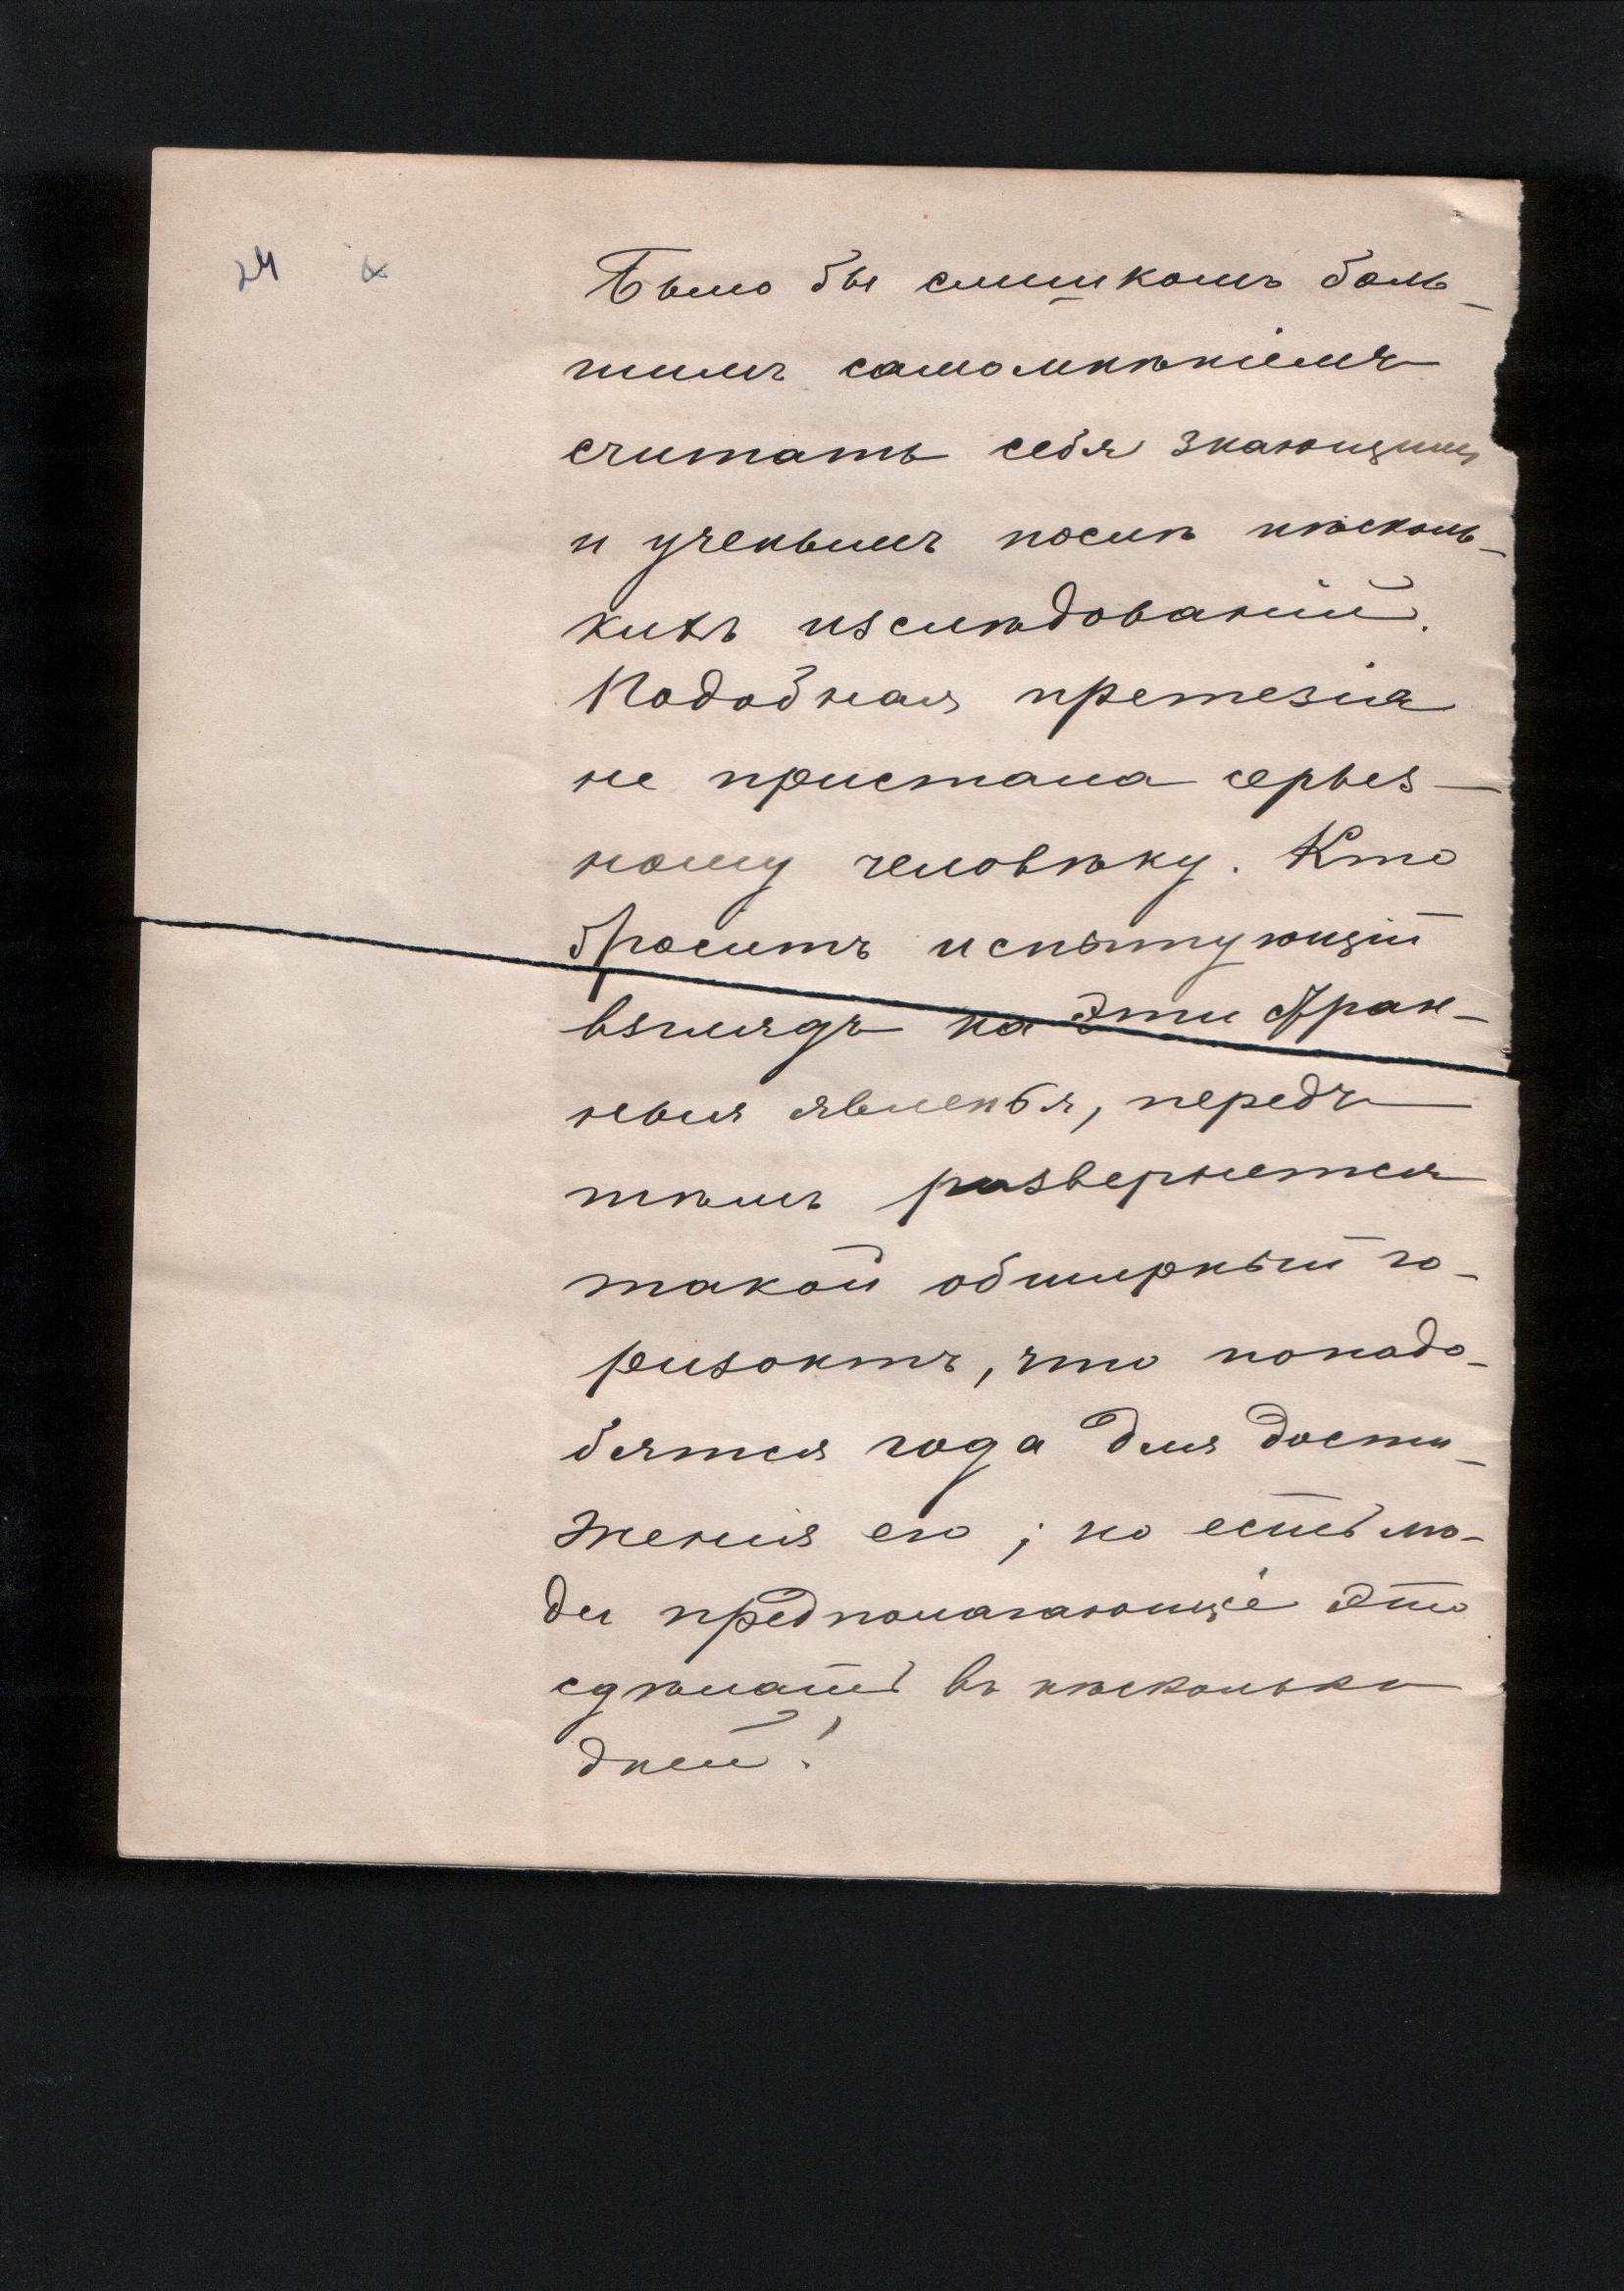 24
Было бы слишкомъ боль-
шимъ самомнѣніемъ
считать себя знающимъ
и ученымъ послѣ нѣсколь-
кихъ изслѣдованій.
Подобная претезія
не пристала серьез-
ному человѣку. Кто
броситъ испытующій
взглядъ на эти стран-
ныя явленья, передъ
тѣмъ развернется
такой обширный го-
ризонтъ, что понадо-
бятся года для дости-
женія его; но есть лю-
ди предполагающіе это
сдѣлать въ нѣсколько
дней!